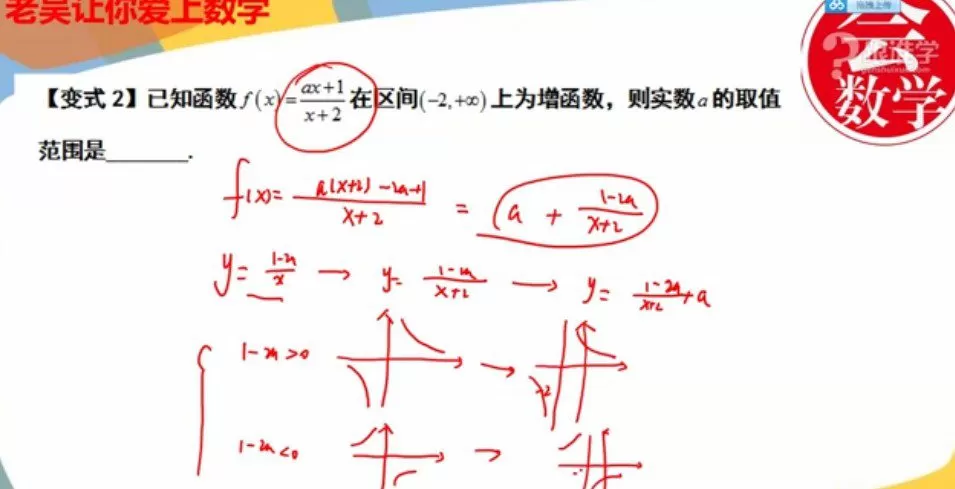 老吴让你爱上数学
拖拽上传
跟谁学
genshuixue.com
数学
【变式 2】已知函数 f(x)=\frac{ax+1}{x+2} 在区间(-2,+∞) 上为增函数，则实数 a 的取值
范围是______.
f(x)= \frac{a(x+2)-2a+1}{x+2} = a + \frac{1-2a}{x+2}
y= \frac{1-2a}{x} → y= \frac{1-2a}{x+2} → y= \frac{1-2a}{x+2}+a
1-2a>0 → -2
1-2a<0 →